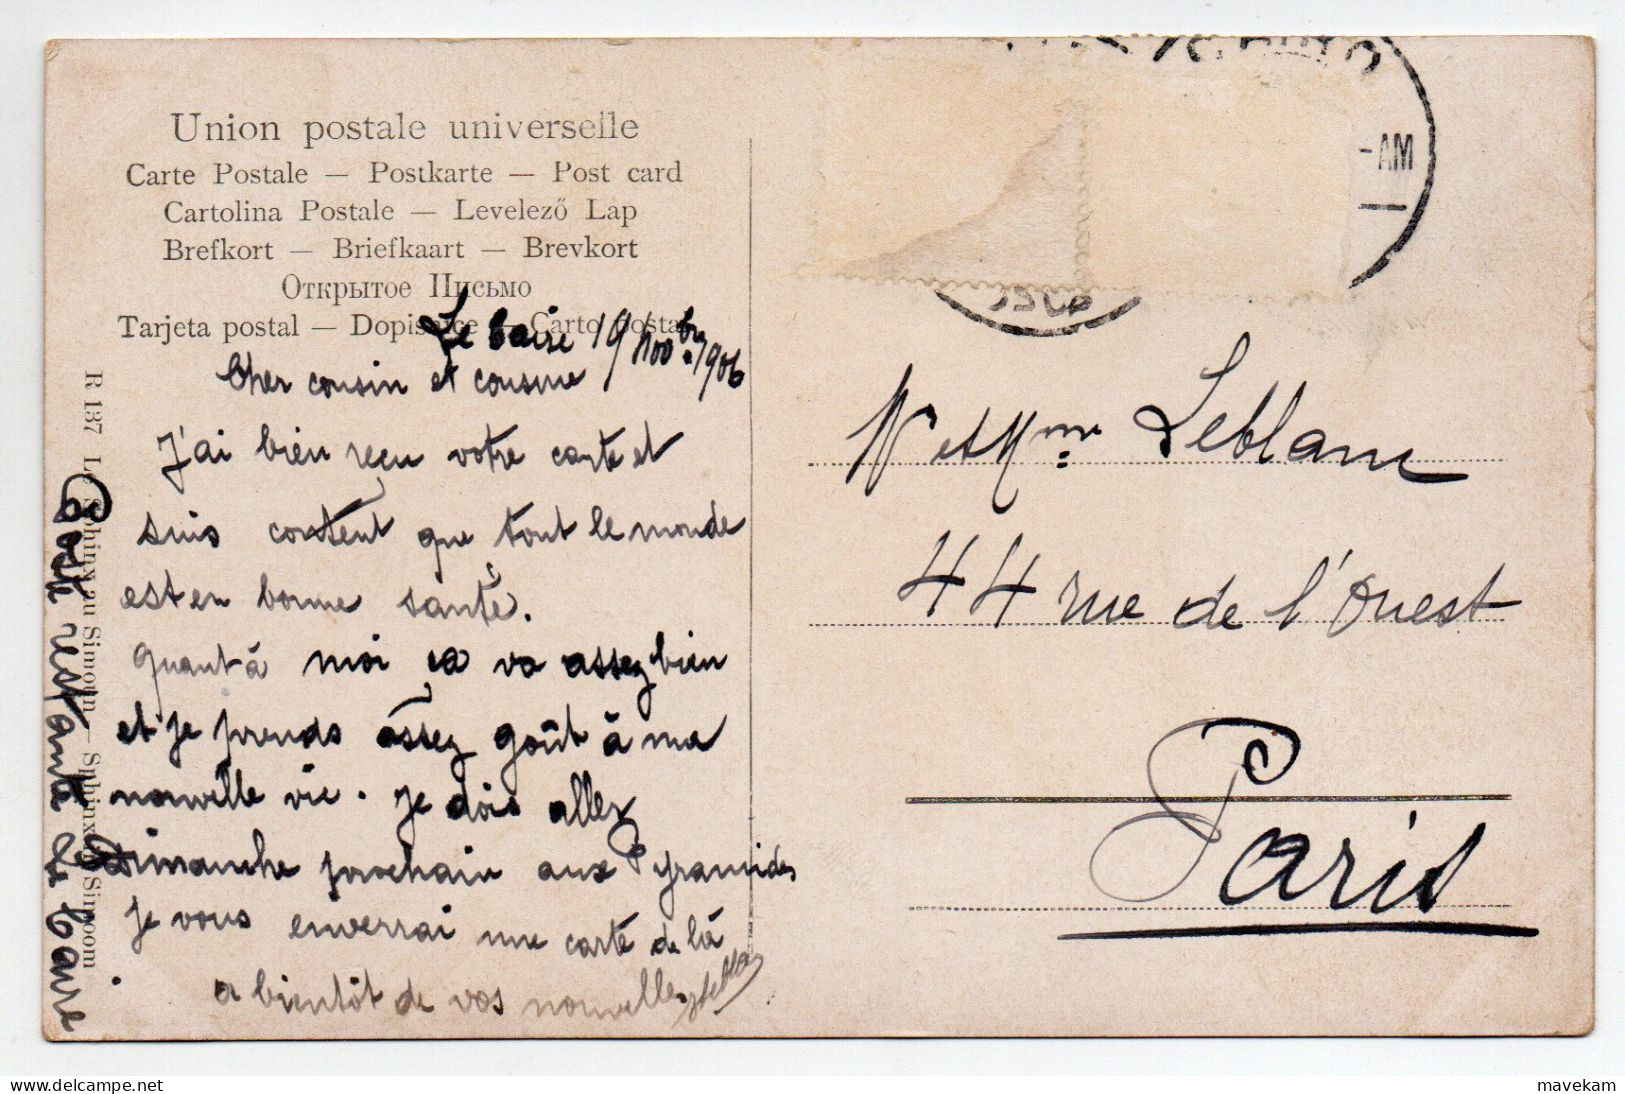 Union postale universelle
Carte Postale — Postkarte — Post card
Cartolina Postale — Levelező Lap
Brefkort — Briefkaart — Brevkort
Открытое Письмо
Tarjeta postal — Dopisnice — Carto postal
Le Caire 19 nov bre 1906
Cher cousin et cousine
J'ai bien reçu votre carte et
suis content que tout le monde
est en bonne santé.
quant à moi ça va assez bien
et je prends assez goût à ma
nouvelle vie. Je dois aller
Dimanche prochain aux Pyramides
je vous enverrai une carte de là
a bientôt de vos nouvelles
Poste restante Le Caire
R 137 Le Sphinx au Simoun — Sphinx Simoom
AM
Mr et Mme Leblanc
44 rue de l'Ouest
Paris
delcampe.net
mavekam